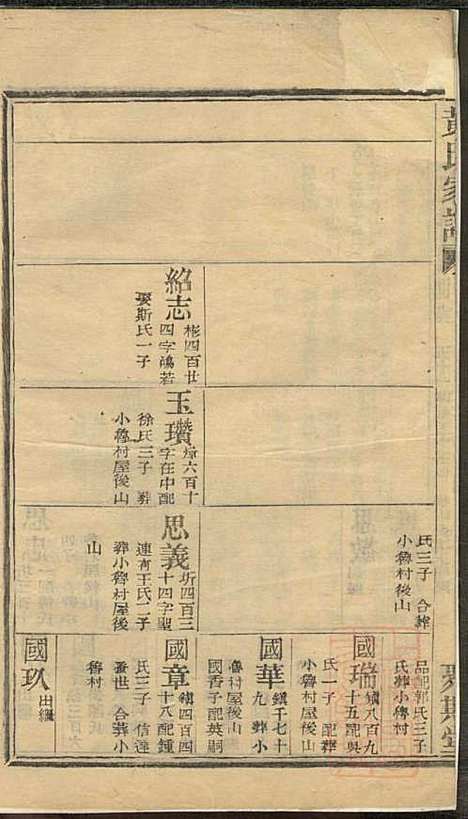 黃氏家譜
聚斯堂
氏三子 合葬
小魯村後山
品配郭氏三子
氏葬小傳村
國瑞
鎮八百九
十五配吳
氏一子 配葬
小魯村屋後山
國華
鎮千七十
九 葬小
魯村屋後山
紹志
彬四百廿
四字鴻若
娶斯氏一子
玉瓚
㷡六百十
字在中配
徐氏三子 葬
小魯村屋後山
思義
圻四百三
十四字聖
連育王氏二子
葬小魯村屋後
山
國香子配英嗣
國章
鎮四百四
十八配鍾
氏三子 信達
蚤世 合葬小
魯村
國玖
出繼